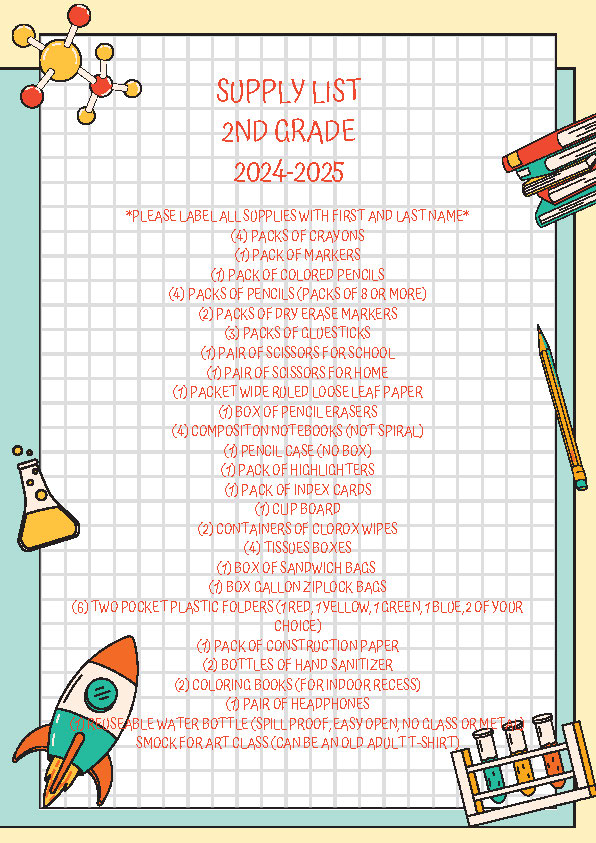 SUPPLY LIST
2ND GRADE
2024-2025
*PLEASE LABEL ALL SUPPLIES WITH FIRST AND LAST NAME*
(4) PACKS OF CRAYONS
(1) PACK OF MARKERS
(1) PACK OF COLORED PENCILS
(4) PACKS OF PENCILS (PACKS OF 8 OR MORE)
(2) PACKS OF DRY ERASE MARKERS
(3) PACKS OF GLUESTICKS
(1) PAIR OF SCISSORS FOR SCHOOL
(1) PAIR OF SCISSORS FOR HOME
(1) PACKET WIDE RULED LOOSE LEAF PAPER
(1) BOX OF PENCIL ERASERS
(4) COMPOSITON NOTEBOOKS (NOT SPIRAL)
(1) PENCIL CASE (NO BOX)
(1) PACK OF HIGHLIGHTERS
(1) PACK OF INDEX CARDS
(1) CLIP BOARD
(2) CONTAINERS OF CLOROX WIPES
(4) TISSUES BOXES
(1) BOX OF SANDWICH BAGS
(1) BOX GALLON ZIPLOCK BAGS
(6) TWO POCKET PLASTIC FOLDERS (1 RED, 1 YELLOW, 1 GREEN, 1 BLUE, 2 OF YOUR
CHOICE)
(1) PACK OF CONSTRUCTION PAPER
(2) BOTTLES OF HAND SANITIZER
(2) COLORING BOOKS (FOR INDOOR RECESS)
(1) PAIR OF HEADPHONES
(1) REUSEABLE WATER BOTTLE (SPILL PROOF, EASY OPEN, NO GLASS OR METAL)
SMOCK FOR ART CLASS (CAN BE AN OLD ADULT T-SHIRT)